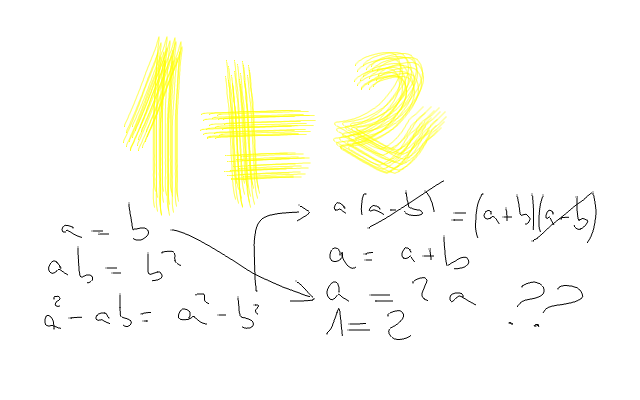 1 ≠ 2
a = b
ab = b²
a² - ab = a² - b²
a(a-b) = (a+b)(a-b)
a = a+b
a = 2a ??
1 = 2